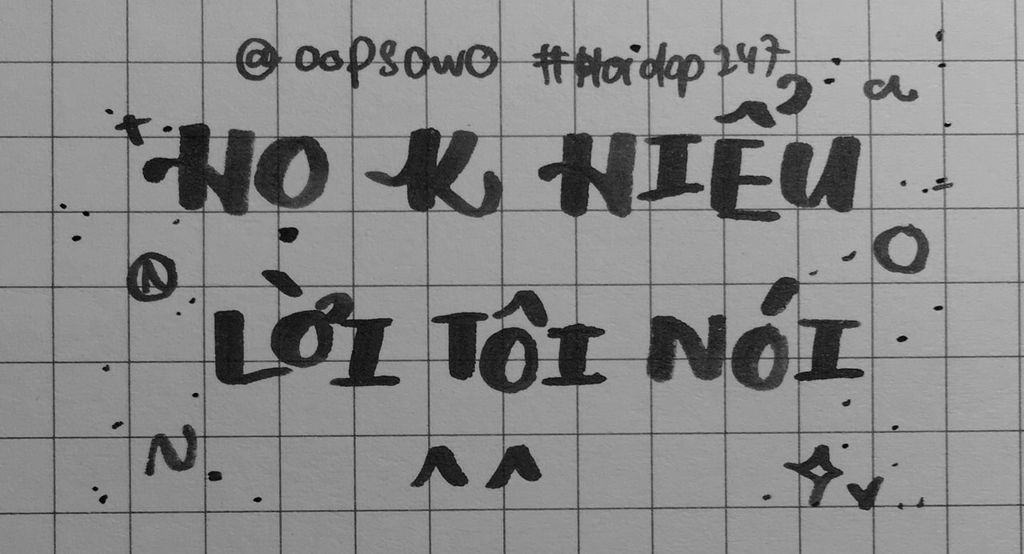 @oopsowo #Hoidap247
HỌ K HIỂU
LỜI TÔI NÓI
^^